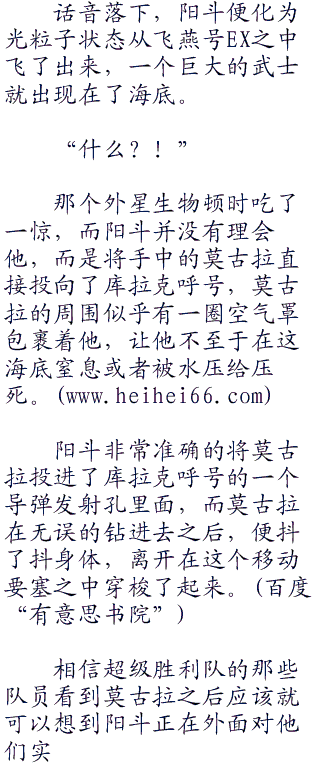 话音落下，阳斗便化为
光粒子状态从飞燕号EX之中
飞了出来，一个巨大的武士
就出现在了海底。
“什么？！”
那个外星生物顿时吃了
一惊，而阳斗并没有理会
他，而是将手中的莫古拉直
接投向了库拉克呼号，莫古
拉的周围似乎有一圈空气罩
包裹着他，让他不至于在这
海底窒息或者被水压给压
死。(www.heihei66.com)
阳斗非常准确的将莫古
拉投进了库拉克呼号的一个
导弹发射孔里面，而莫古拉
在无误的钻进去之后，便抖
了抖身体，离开在这个移动
要塞之中穿梭了起来。(百度
“有意思书院”)
相信超级胜利队的那些
队员看到莫古拉之后应该就
可以想到阳斗正在外面对他
们实